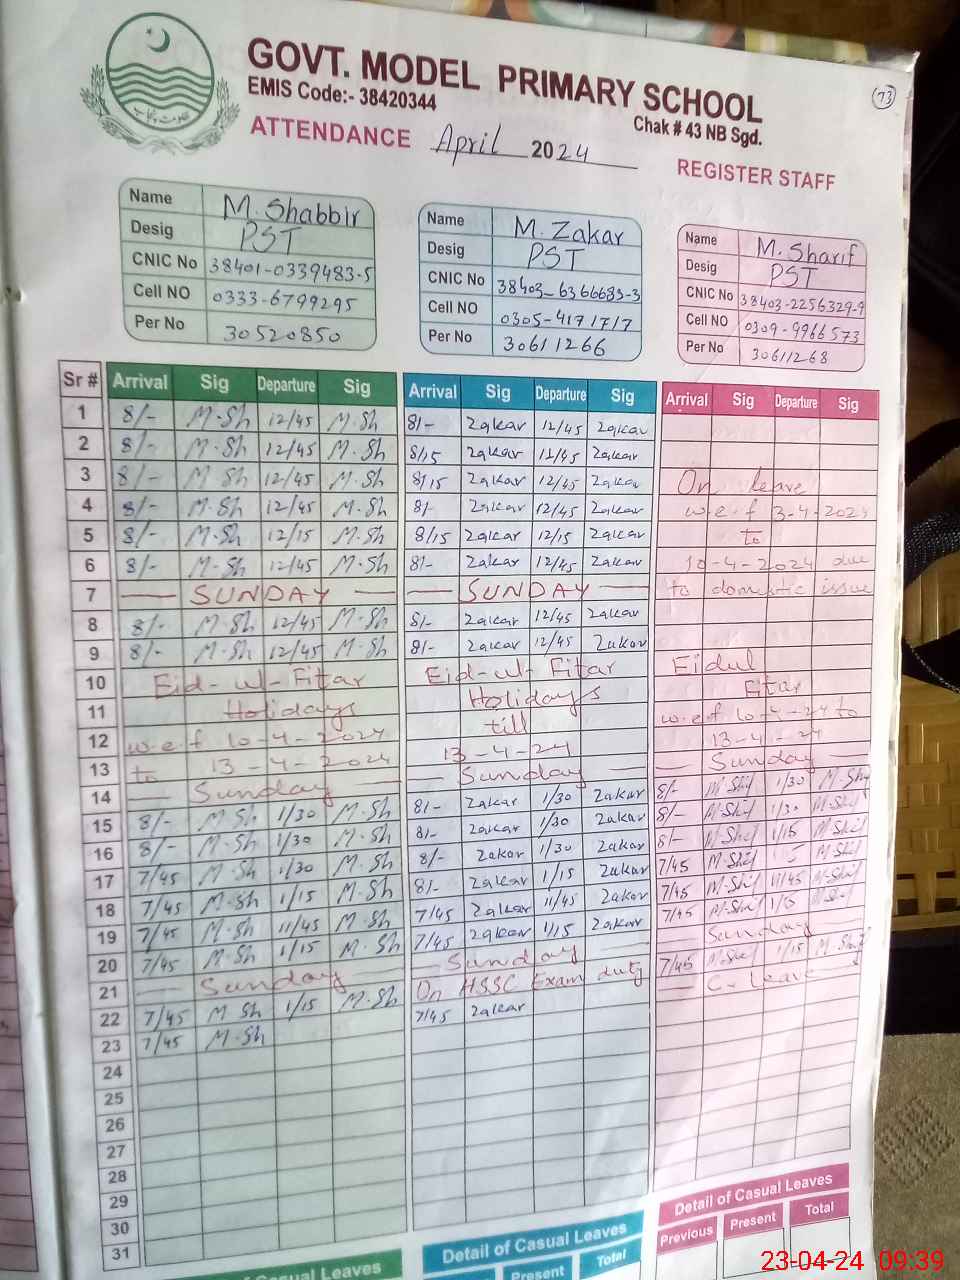 GOVT. MODEL PRIMARY SCHOOL
EMIS Code:- 38420344
Chak # 43 NB Sgd.
73
ATTENDANCE April 2024
REGISTER STAFF
حکومت پنجاب
Name M. Shabbir
Desig PST
CNIC No 38401-0339483-5
Cell NO 0333-6799295
Per No 30520850
Name M. Zakar
Desig PST
CNIC No 38403-6366683-3
Cell NO 0305-4171717
Per No 30611266
Name M. Sharif
Desig PST
CNIC No 38403-2256329-9
Cell NO 0309-9966573
Per No 30611268
Sr # Arrival Sig Departure Sig Arrival Sig Departure Sig Arrival Sig Departure Sig
1 8/- M.Sh 12/45 M.Sh 8/- Zakar 12/45 Zakar
2 8/- M.Sh 12/45 M.Sh 8/15 Zakar 12/45 Zakar
3 8/- M.Sh 12/45 M.Sh 8/15 Zakar 12/45 Zakar On leave
4 8/- M.Sh 12/45 M.Sh 8/- Zakar 12/45 Zakar w.e.f 3-4-2024
5 8/- M.Sh 12/15 M.Sh 8/15 Zakar 12/15 Zakar to
6 8/- M.Sh 12/45 M.Sh 8/- Zakar 12/45 Zakar 10-4-2024 due
7 SUNDAY SUNDAY to domestic issue
8 8/- M.Sh 12/45 M.Sh 8/- Zakar 12/45 Zakar
9 8/- M.Sh 12/45 M.Sh 8/- Zakar 12/45 Zakar
10 Eid-ul-Fitar Eid-ul-Fitar Eidul
11 Holidays Holidays Fitar
12 w.e.f 10-4-2024 till w.e.f 10-4-24 to
13 to 13-4-2024 13-4-24 13-4-24
14 Sunday Sunday Sunday
15 8/- M.Sh 1/30 M.Sh 8/- Zakar 1/30 Zakar 8/- M.Shif 1/30 M.Shif
16 8/- M.Sh 1/30 M.Sh 8/- Zakar 1/30 Zakar 8/- M.Shif 1/30 M.Shif
17 7/45 M.Sh 1/30 M.Sh 8/- Zakar 1/30 Zakar 8/- M.Shif 1/15 M.Shif
18 7/45 M.Sh 1/15 M.Sh 8/- Zakar 1/15 Zakar 7/45 M.Shif M.Shif
19 7/45 M.Sh 11/45 M.Sh 7/45 Zakar 11/45 Zakar 7/45 M.Shif 11/45 M.Shif
20 7/45 M.Sh 1/15 M.Sh 7/45 Zakar 1/15 Zakar 7/45 M.Shif 1/15 M.Shif
21 Sunday Sunday Sunday
22 7/45 M.Sh 1/15 M.Sh On HSSC Exam duty 7/45 M.Shif 1/15 M.Shif
23 7/45 M.Sh 7/45 Zakar C-leave
24
25
26
27
28
29
30
31
Casual Leaves
Detail of Casual Leaves
Present Total
Detail of Casual Leaves
Previous Present Total
23-04-24 09:39